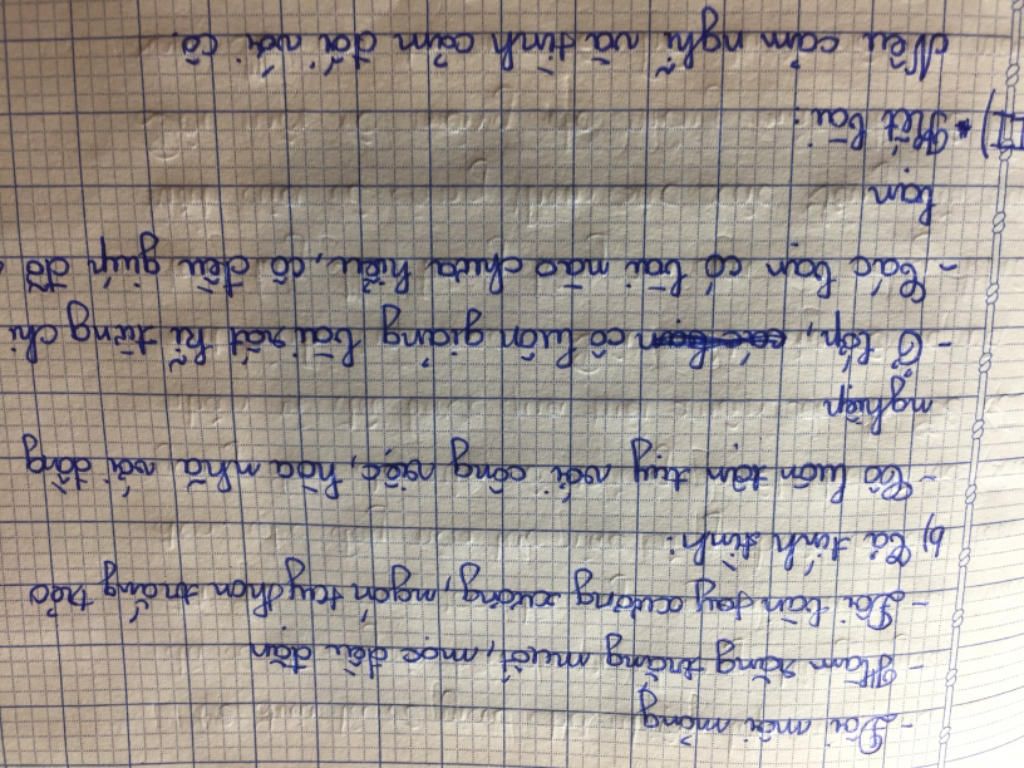 - Đôi môi mỏng
- Hàm răng trắng muốt, mọc đều đặn
- Đôi bàn tay xương xương, ngón tay thon trắng trẻo
b) Tả tính tình:
- Cô luôn tận tụy với công việc, hòa nhã với đồng
nghiệp
- Ở lớp, cô luôn giảng bài rất kĩ từng chi
- Các bạn có bài nào chưa hiểu, cô đều giúp đỡ
bạn
III) Kết bài:
Nêu cảm nghĩ và tình cảm đối với cô.